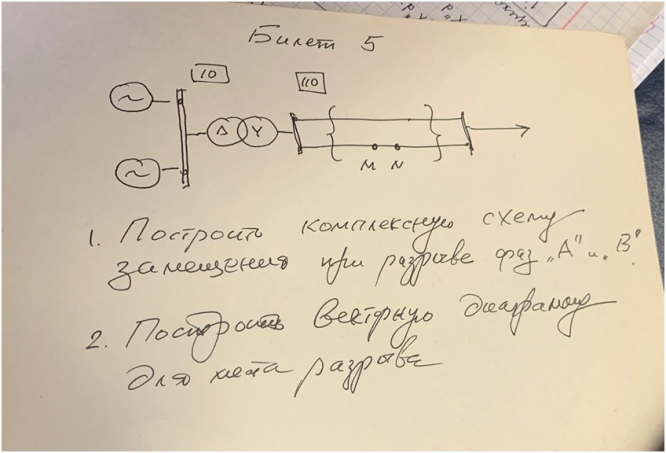 Билет 5
10
110
Δ Y
M N
1. Построить комплексную схему
замещения при разрыве фаз „А" и „В".
2. Построить векторную диаграмму
для места разрыва